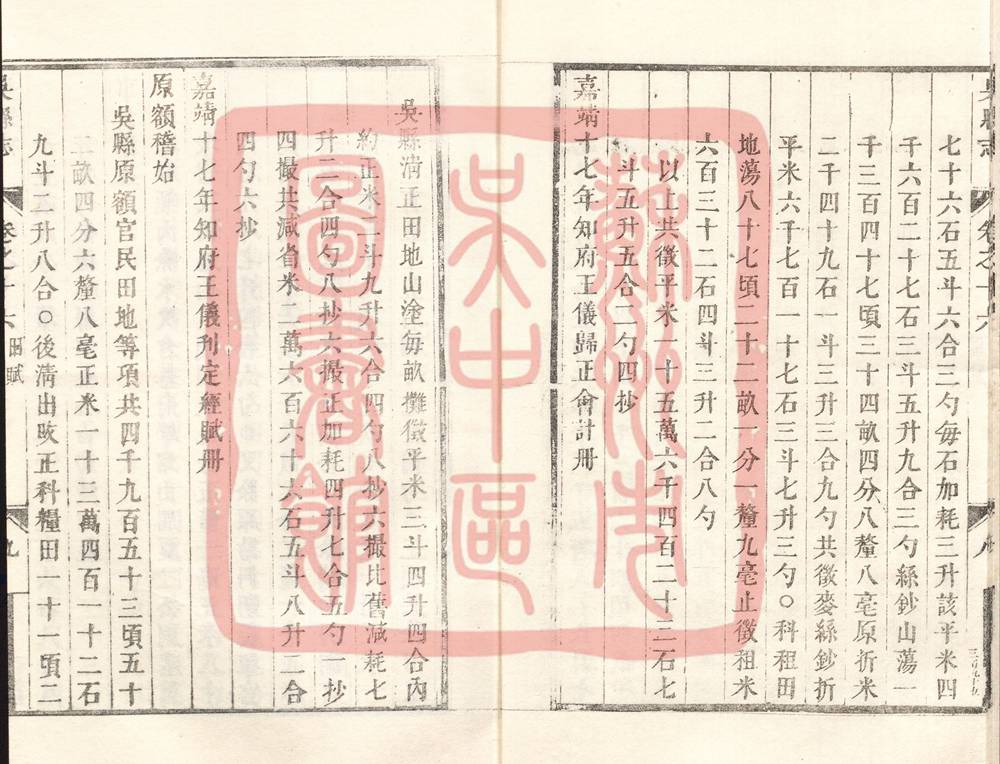 吳縣志
卷之十六
八
三百九十五
七十六石五斗六合三勺每石加耗三升該平米四
千六百二十七石三斗五升九合三勺絲鈔山蕩一
千三百四十七頃三十四畝四分八釐八毫原折米
二千四十九石一斗三升三合九勺共徵麥絲鈔折
平米六千七百一十七石三斗七升三勺○科租田
地蕩八十七頃二十二畝一分一釐九毫止徵租米
六百三十二石四斗三升二合八勺
以上共徵平米一十五萬六千四百二十三石七
斗五升五合二勺四抄
嘉靖十七年知府王儀歸正會計冊
吳縣淸正田地山塗每畝攤徵平米三斗四升四合內
約正米二斗九升六合四勺八抄六撮比舊減耗七
升二合四勺八抄六撮正加耗四升七合五勺一抄
四撮共減省米二萬六百六十六石五斗八升二合
四勺六抄
嘉靖十七年知府王儀刊定經賦冊
原額稽始
吳縣原額官民田地等項共四千九百五十三頃五十
二畝四分六釐八毫正米一十三萬四百一十二石
九斗三升八合○後淸出改正科糧田一十一頃二
吳縣志
卷之十六
田賦
九
蘇州市
吳中區
圖書館